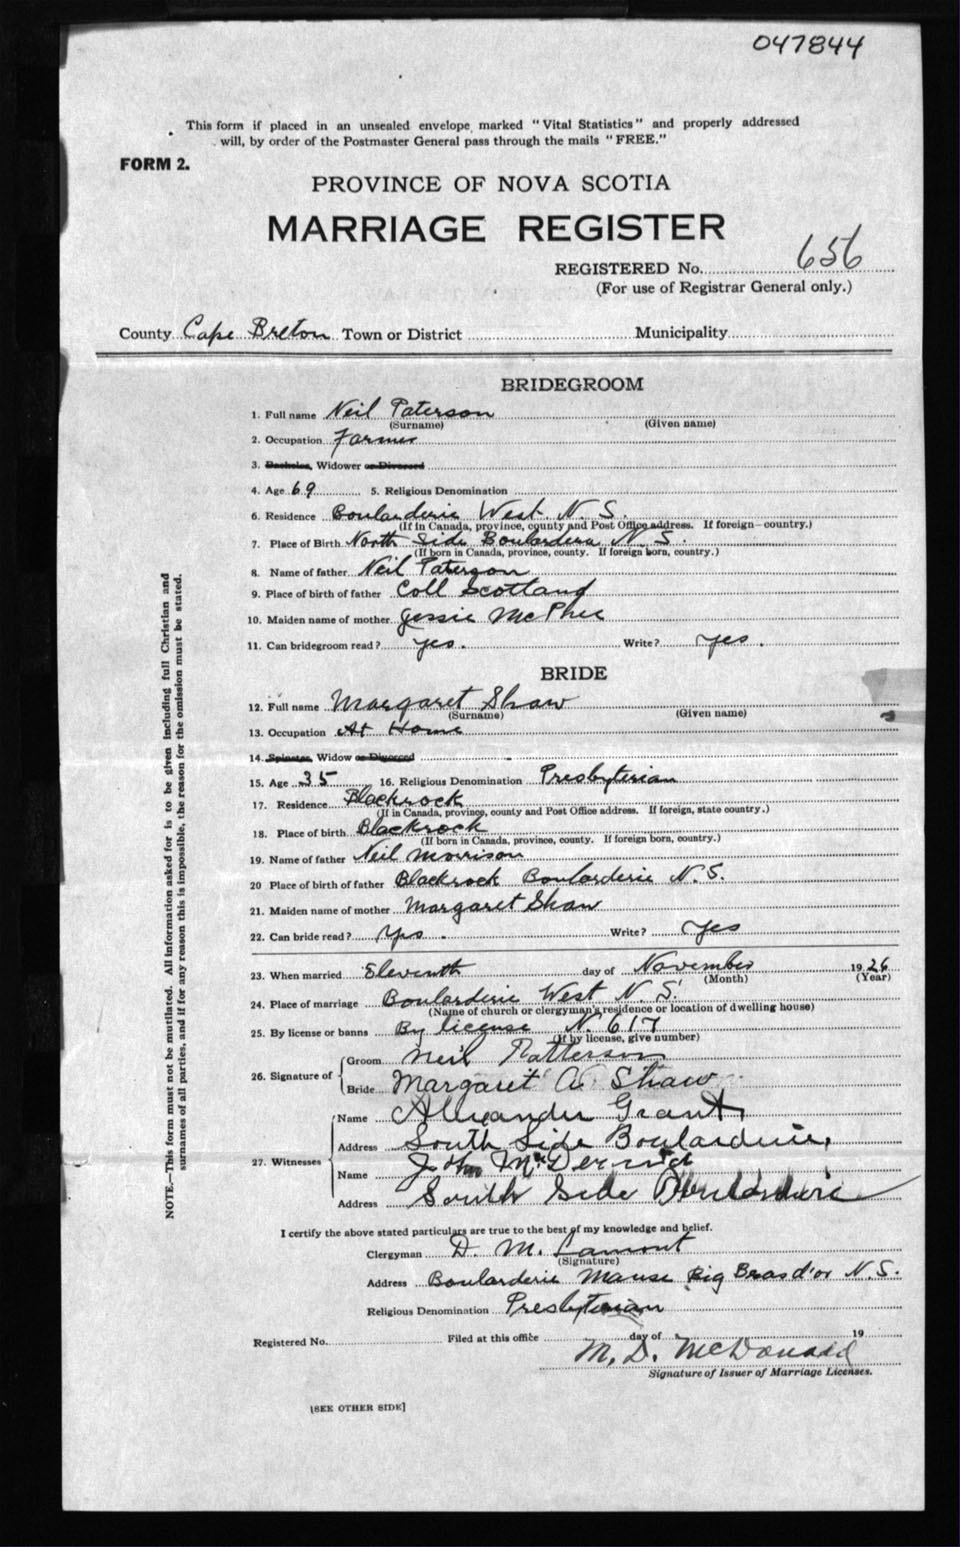 047844
This form if placed in an unsealed envelope, marked "Vital Statistics" and properly addressed
will, by order of the Postmaster General pass through the mails "FREE."
FORM 2.
PROVINCE OF NOVA SCOTIA
MARRIAGE REGISTER
REGISTERED No. 656
(For use of Registrar General only.)
County Cape Breton Town or District Municipality
BRIDEGROOM
1. Full name Neil Paterson
(Surname) (Given name)
2. Occupation Farmer
3. Bachelor, Widower or Divorced
4. Age 69 5. Religious Denomination
6. Residence Boularderie West N. S.
(If in Canada, province, county and Post Office address. If foreign-country.)
7. Place of Birth North Side Boulardera N. S.
(If born in Canada, province, county. If foreign born, country.)
8. Name of father Neil Paterson
9. Place of birth of father Coll Scotland
10. Maiden name of mother Jessie McPhee
11. Can bridegroom read? yes. Write? yes.
BRIDE
12. Full name Margaret Shaw
(Surname) (Given name)
13. Occupation At Home
14. Spinster, Widow or Divorced
15. Age 35 16. Religious Denomination Presbyterian
17. Residence Blackrock
(If in Canada, province, county and Post Office address. If foreign, state country.)
18. Place of birth Blackrock
(If born in Canada, province, county. If foreign born, country.)
19. Name of father Neil Morrison
20 Place of birth of father Blackrock Boularderie N. S.
21. Maiden name of mother Margaret Shaw
22. Can bride read? Yes. Write? Yes
23. When married Eleventh day of November 1926
(Month) (Year)
24. Place of marriage Boularderie West N. S.
(Name of church or clergyman's residence or location of dwelling house)
25. By license or banns By license N. 617
(If by license, give number)
26. Signature of
Groom Neil Patterson
Bride Margaret A. Shaw
27. Witnesses
Name Alexander Grant
Address South Side Boularderie,
Name John McDermid
Address South Side Boularderie
I certify the above stated particulars are true to the best of my knowledge and belief.
Clergyman D. M. Lamont
(Signature)
Address Boularderie Manse Big Bras d'or N. S.
Religious Denomination Presbyterian
Registered No. Filed at this office day of 19
M. D. McDonald
Signature of Issuer of Marriage Licenses.
[SEE OTHER SIDE]
NOTE.—This form must not be mutilated. All information asked for is to be given including full Christian and
surnames of all parties, and if for any reason this is impossible, the reason for the omission must be stated.